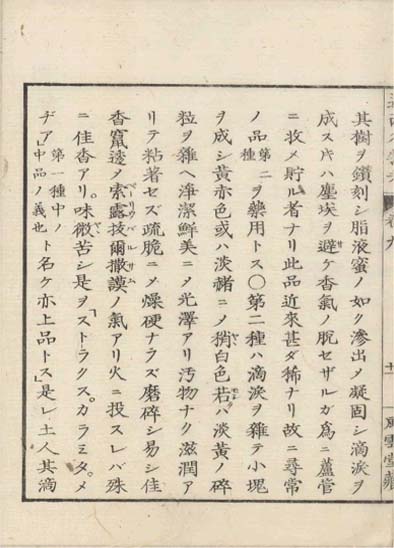 其樹ヲ鑽刻シ脂液蜜ノ如ク滲出〆凝固シ滴淚ヲ
成ス𪜈ハ塵埃ヲ避ケ香氣ノ脫セザルガ爲ニ蘆管
ニ收メ貯ル者ナリ此品近來甚ダ稀ナリ故ニ尋常
ノ品第二種ヲ藥用トス〇第二種ハ滴淚ヲ雜テ小塊
ヲ成シ黃赤色或ハ淡赭ニ〆稍白色若ハ淡黃ノ碎
粒ヲ雜ヘ淨潔鮮美ニ〆光澤アリ汚物ナク滋潤ア
リテ粘著セズ疏脆ニ〆燥硬ナラズ磨碎シ易シ佳
香竄透ノ索露拔爾撒謨ペーリウバルサムノ氣アリ火ニ投スレバ殊
ニ佳香アリ。味微苦シ是ヲ「ストラクス。カラミタ。メ
ヂア」第一種中ノ中品ノ義也ト名ケ亦上品トス」是レ土人其滴
卷九
十一
風雲堂藏